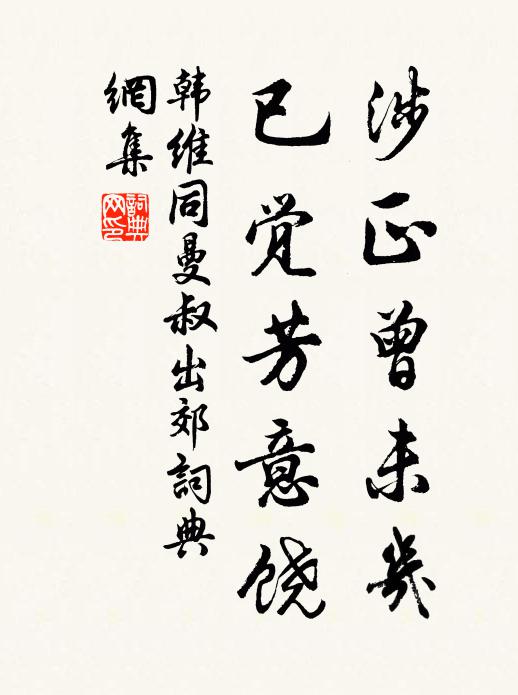 涉正曾未幾
已觉芳意饶
韩维同曼叔出郊詞典
網集
詞典网印